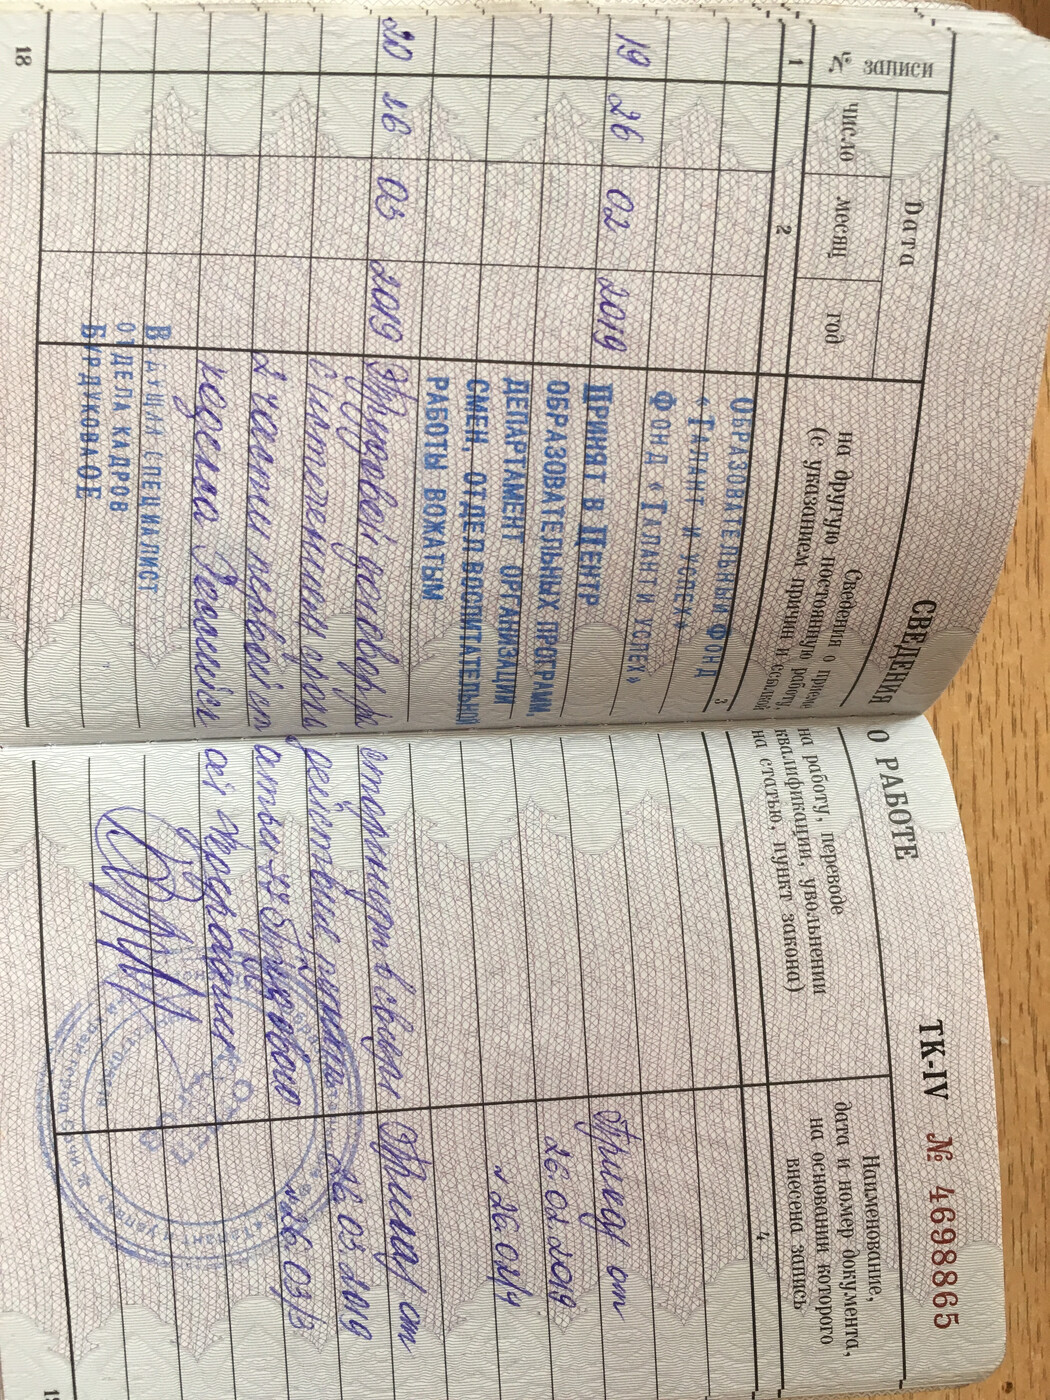 СВЕДЕНИЯ О РАБОТЕ
ТК-IV № 4698865
№ записи
Дата
число
месяц
год
Сведения о приеме на работу, переводе
на другую постоянную работу, квалификации, увольнении
(с указанием причин и ссылкой на статью, пункт закона)
Наименование,
дата и номер документа,
на основании которого
внесена запись
1
2
3
4
Образовательный Фонд
«Талант и успех»
Фонд «Талант и успех»
19 26 02 2019 Принят в Центр Приказ от
образовательных программ, 26.02.2019
департамент организации № 26.02/4
смен, отдел воспитательной
работы вожатым
20 26 03 2019 Трудовой договор расторгнут в связи Приказ от
с истечением срока действия, пункт 26.03.2019
2 части первой статьи 77 Трудового № 26.03/3
кодекса Российской Федерации
Ведущий специалист
отдела кадров
Бурдукова О.Е
18